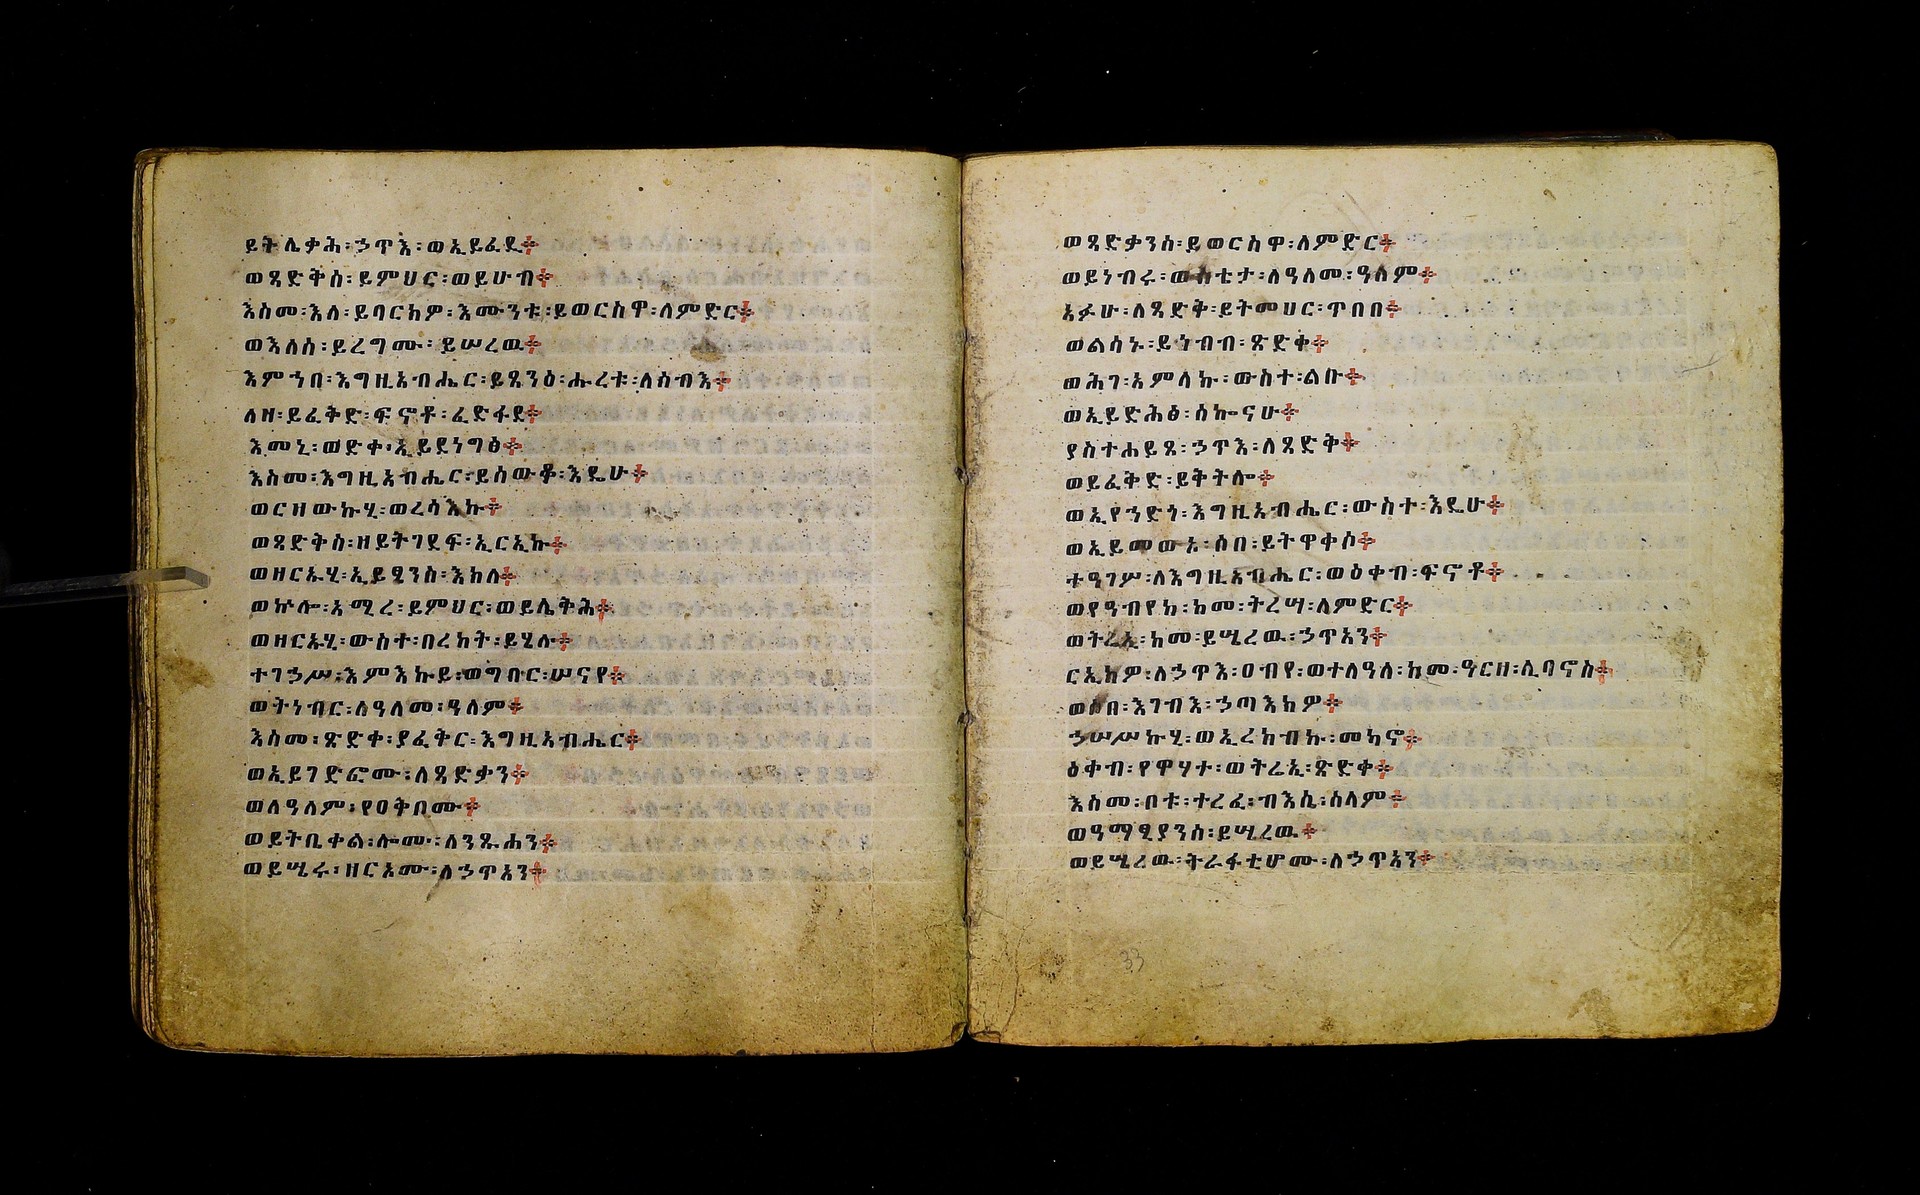 ይትሌቃሕ፡ኃጥእ፡ወኢይፈዲ፨
ወጻድቅሰ፡ይምህር፡ወይሁብ፨
እስመ፡እለ፡ይባርክዎ፡እሙንቱ፡ይወርስዋ፡ለምድር፨
ወእለሰ፡ይረግሙ፡ይሠረዉ፨
እምኀበ፡እግዚአብሔር፡ይጸንዕ፡ሑረቱ፡ለሰብእ፨
ለዘ፡ይፈቅድ፡ፍኖቶ፡ፈድፋደ፨
እመኒ፡ወድቀ፡ኢይደነግፅ፨
እስመ፡እግዚአብሔር፡ይሰውቆ፡እዴሁ፨
ወርዘውኩሂ፡ወረሳእኩ፨
ወጻድቅሰ፡ዘይትገደፍ፡ኢርኢኩ፨
ወዘርኡሂ፡ኢይፄንስ፡እክለ፨
ወኵሎ፡አሚረ፡ይምህር፡ወይሌቅሕ፨
ወዘርኡሂ፡ውስተ፡በረከት፡ይሄሉ፨
ተገኃሥ፡እምእኩይ፡ወግበር፡ሠናየ፨
ወትነብር፡ለዓለመ፡ዓለም፨
እስመ፡ጽድቀ፡ያፈቅር፡እግዚአብሔር፨
ወኢይገድፎሙ፡ለጻድቃን፨
ወለዓለም፡የዐቅቦሙ፨
ወይትቤቀል፡ሎሙ፡ለንጹሐን፨
ወይሤሩ፡ዘርኦሙ፡ለኃጥአን፨
ወጻድቃንሰ፡ይወርስዋ፡ለምድር፨
ወይነብሩ፡ውስቴታ፡ለዓለመ፡ዓለም፨
አፉሁ፡ለጻድቅ፡ይትመሀር፡ጥበበ፨
ወልሳኑ፡ይነብብ፡ጽድቀ፨
ወሕገ፡አምላኩ፡ውስተ፡ልቡ፨
ወኢይድሕፅ፡ሰኰናሁ፨
ያስተሐይጾ፡ኃጥእ፡ለጻድቅ፨
ወይፈቅድ፡ይቅትሎ፨
ወኢየኀድጎ፡እግዚአብሔር፡ውስተ፡እዴሁ፨
ወኢይመውኦ፡ሶበ፡ይትዋቀሶ፨
ተዓገሥ፡ለእግዚአብሔር፡ወዕቀብ፡ፍኖቶ፨
ወየዓብየከ፡ከመ፡ትረሣ፡ለምድር፨
ወትሬኢ፡ከመ፡ይሤረዉ፡ኃጥአን፨
ርኢክዎ፡ለኃጥእ፡ዐብየ፡ወተለዓለ፡ከመ፡ዓርዘ፡ሊባኖስ፨
ወሶበ፡እገብእ፡ኃጣእክዎ፨
ኃሠሥኩሂ፡ወኢረከብኩ፡መካኖ፨
ዕቀብ፡የዋሃተ፡ወትሬኢ፡ጽድቀ፨
እስመ፡ቦቱ፡ተረፈ፡ብእሲ፡ሰላም፨
ወዓማፂያንሰ፡ይሤረዉ፨
ወይሤረው፡ትራፋቲሆሙ፡ለኃጥአን፨
33